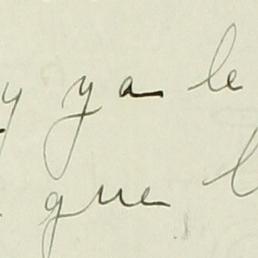 y ya le
que l